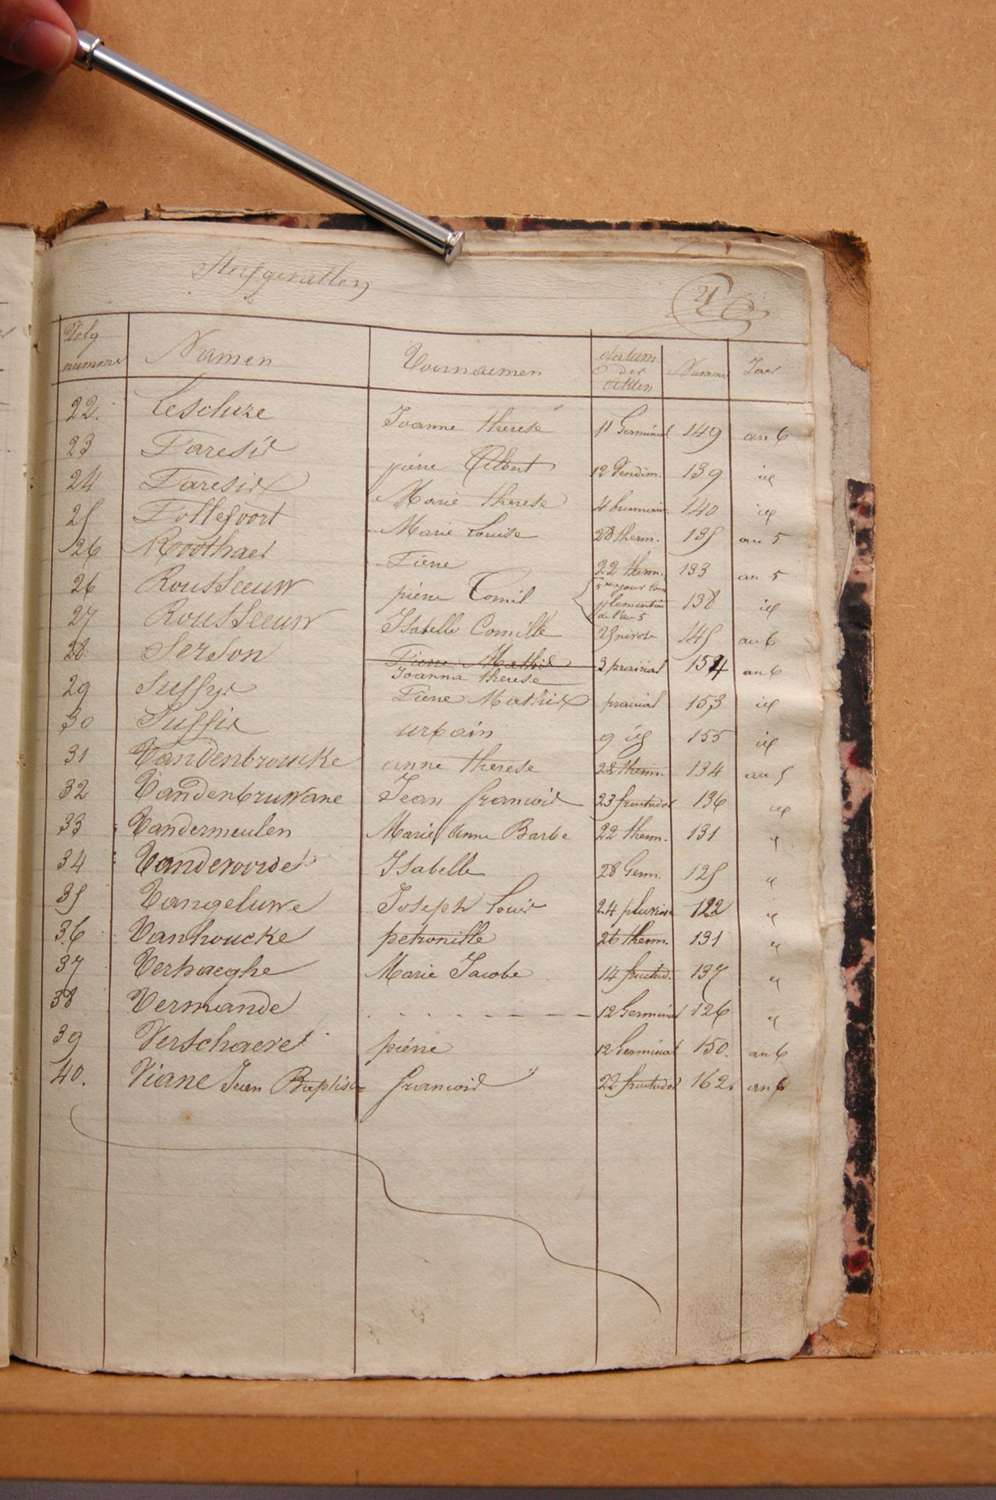 Sterfgevallen
Volg numero Namen Voornaemen datum der akten Numero Jaer
22. Joanne therese 11 Germinal 149 an 6
23 Faresie piere 12 Vendim. 139 id
24 Faresie Marie therese 4 brumair 140 id
25 Follefoort Marie Louise 28 therm. 135 an 5
26 Roothaet Piere 22 therm. 133 an 5
26 Rousseeuw piere Cornil 138 id
27 Rousseeuw Isabelle Cornille 25 nivose 145 an 6
28 Serson Joanna therese 3 prairial 154 an 6
29 Piere prairial 153 id
30 urbain 9 id 155 id
31 Vandenbroucke anne therese 28 therm. 134 an 5
32 Vandenbruwane Jean francois 23 fructidor 136 id
33 Vandermeulen Marie Anne Barbe 22 therm. 131 "
34 Vandevoorde Isabelle 28 Germ. 125 "
35 Vangeluwe Joseph Louis 24 pluviose 122 "
36 Vanhoucke petronille 26 therm. 131 "
37 Verhaeghe Marie Jacobe 14 fructid. 137 "
38 Vermande - - - - - - - 12 Germinal 126 "
39 Verschaeve piérre 12 Germinal 150. an 6
40. Viane Jean Baptiste francois 22 fructidor 162. an 6